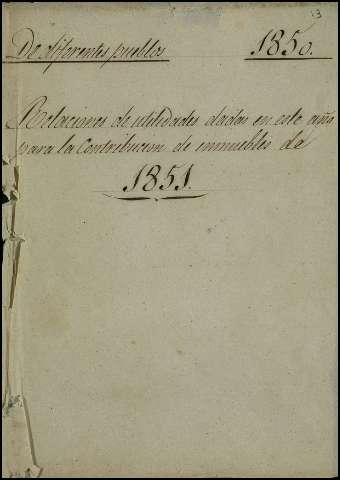 13
De diferentes pueblos 1850.
Relaciones de utilidades dadas en este año
para la Contribucion de inmuebles de
1851.